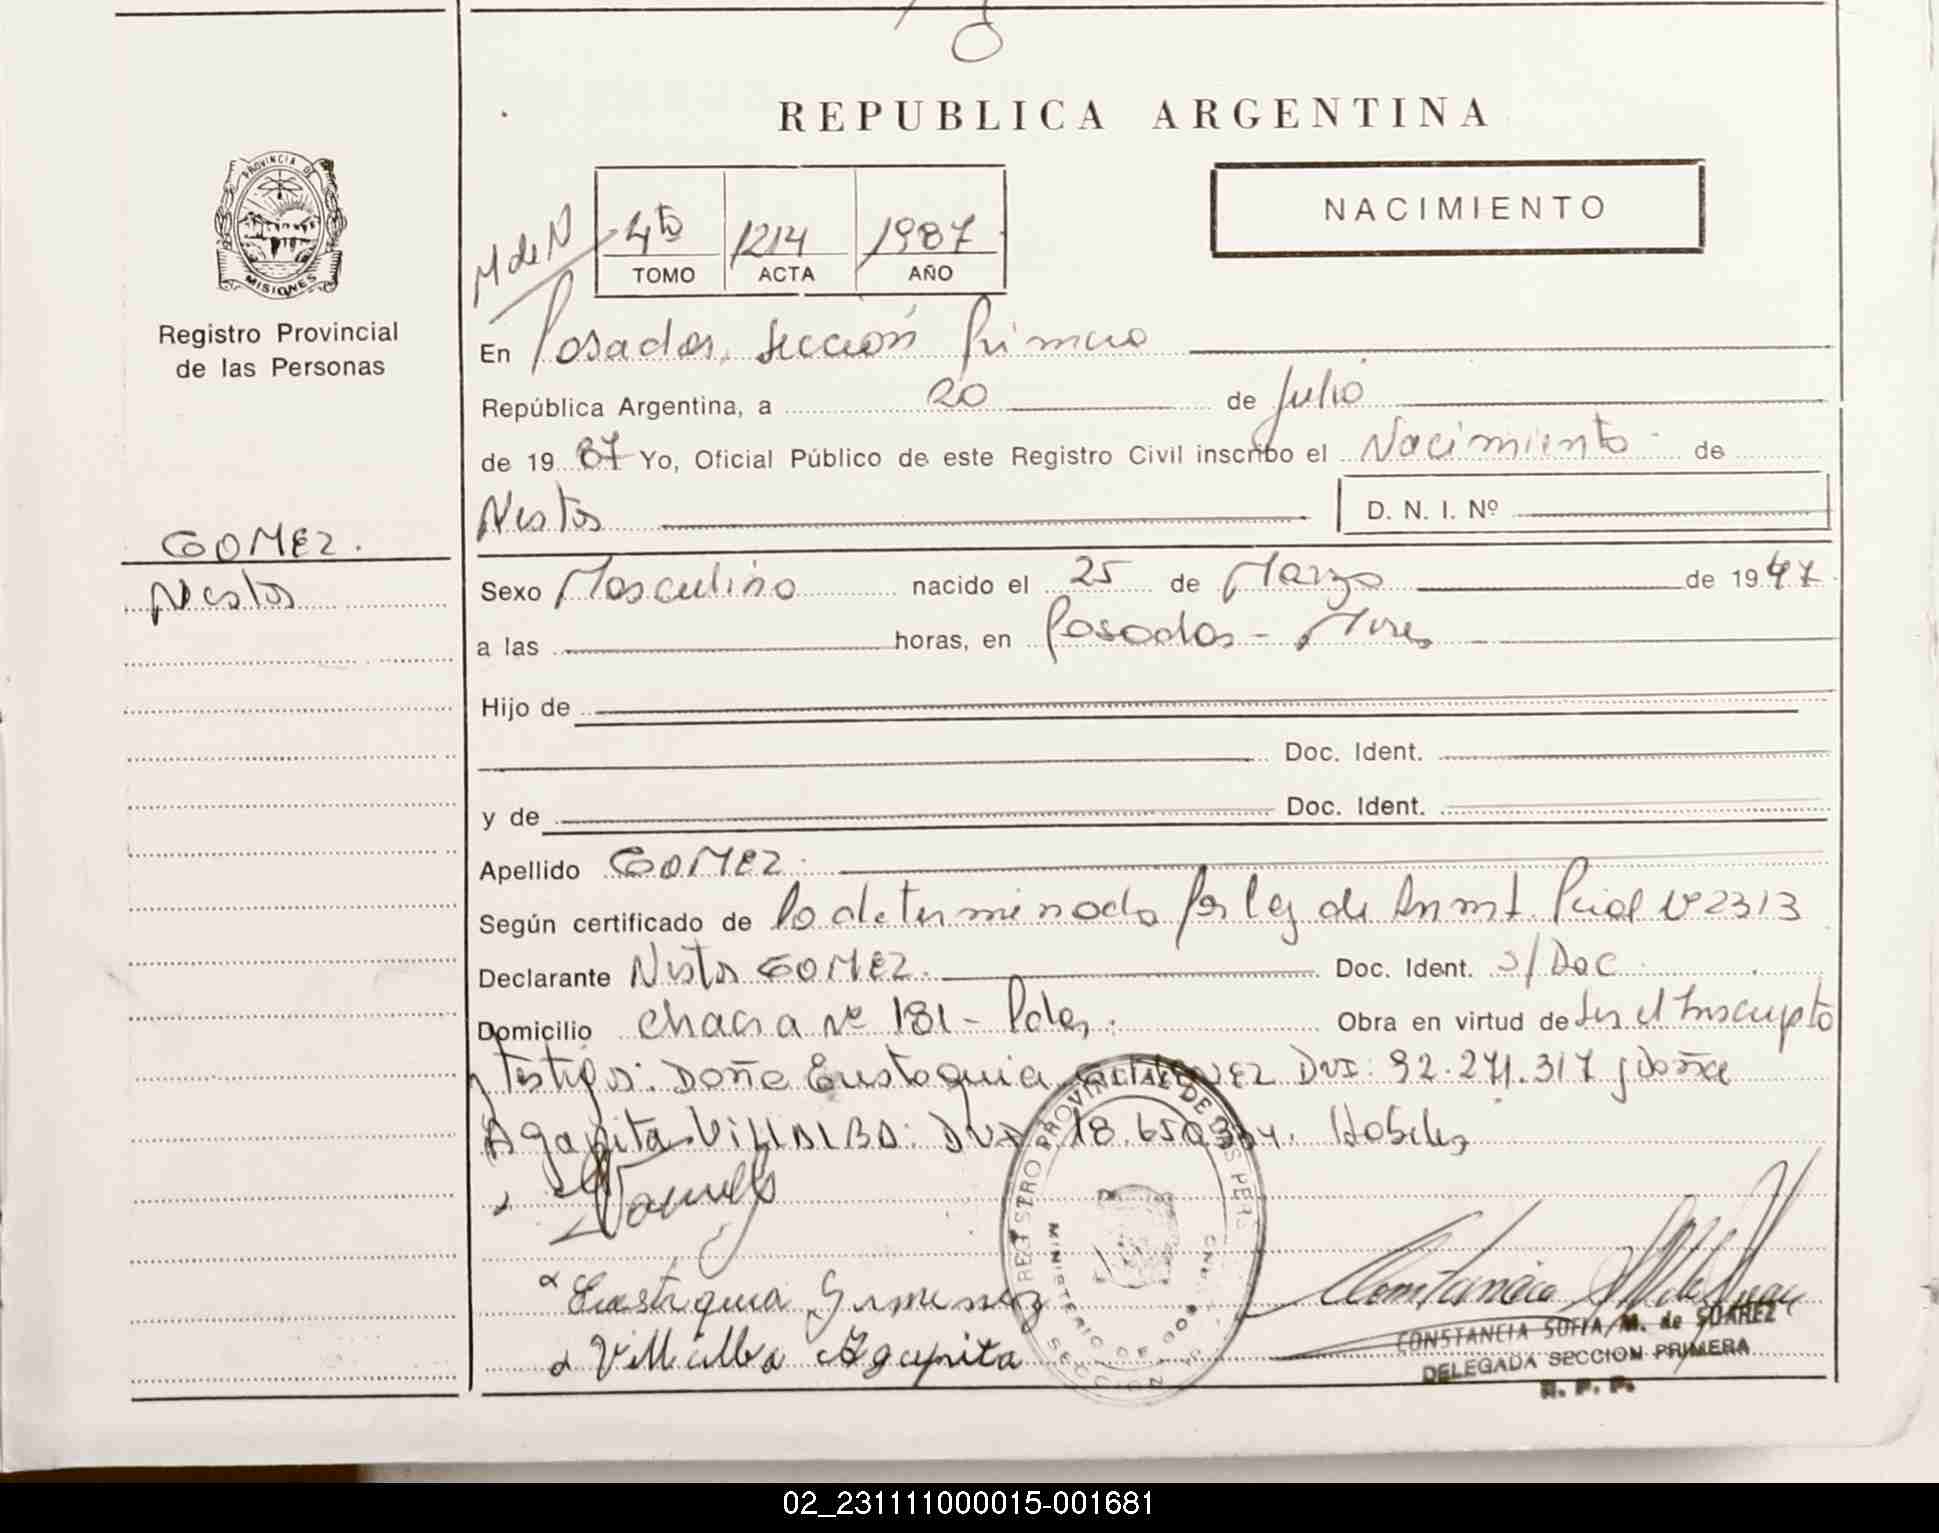 REPUBLICA ARGENTINA
PROVINCIA DE
MISIONES
Registro Provincial
de las Personas
M de N
4to 1214 1987
TOMO ACTA AÑO
NACIMIENTO
En Posadas, Sección Primera
República Argentina, a 20 de Julio
de 19 87 Yo, Oficial Público de este Registro Civil inscribo el Nacimiento de
Nestor D. N. I. Nº
GOMEZ.
Nestor
Sexo Masculino nacido el 25 de Marzo de 19 47
a las horas, en Posadas - Mnes
Hijo de
Doc. Ident.
y de Doc. Ident.
Apellido GOMEZ
Según certificado de lo determinado por ley de Pcial Nº 2313
Declarante Nestor GOMEZ. Doc. Ident. S/Doc
Domicilio Chacra Nº 181 - Pdas. Obra en virtud de Ser el Inscripto
Testigos: Doña Eustaquia DNI: 92.271.317 y Doña
Agapita VILLALBA: DNI 18.650 Hábiles
Eustaquia Gimenez
Villalba Agapita
REGISTRO PROVINCIAL DE LAS PERS
MINISTERIO DE GOB
SECCION
CONSTANCIA SOFIA M. de SUAREZ
DELEGADA SECCION PRIMERA
R. P. P.
02_231111000015-001681